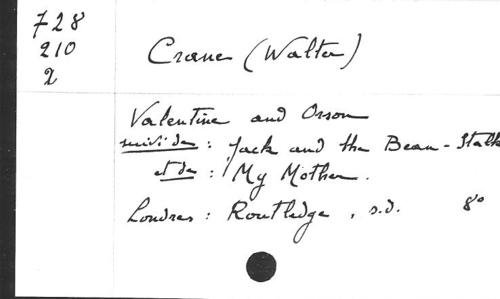 728
210
2
Crane (Walter)
Valentine and Orson
suivi de : Jack and the Bean-Stalk
et de : My Mother.
Londres : Routledge, s.d. 8°